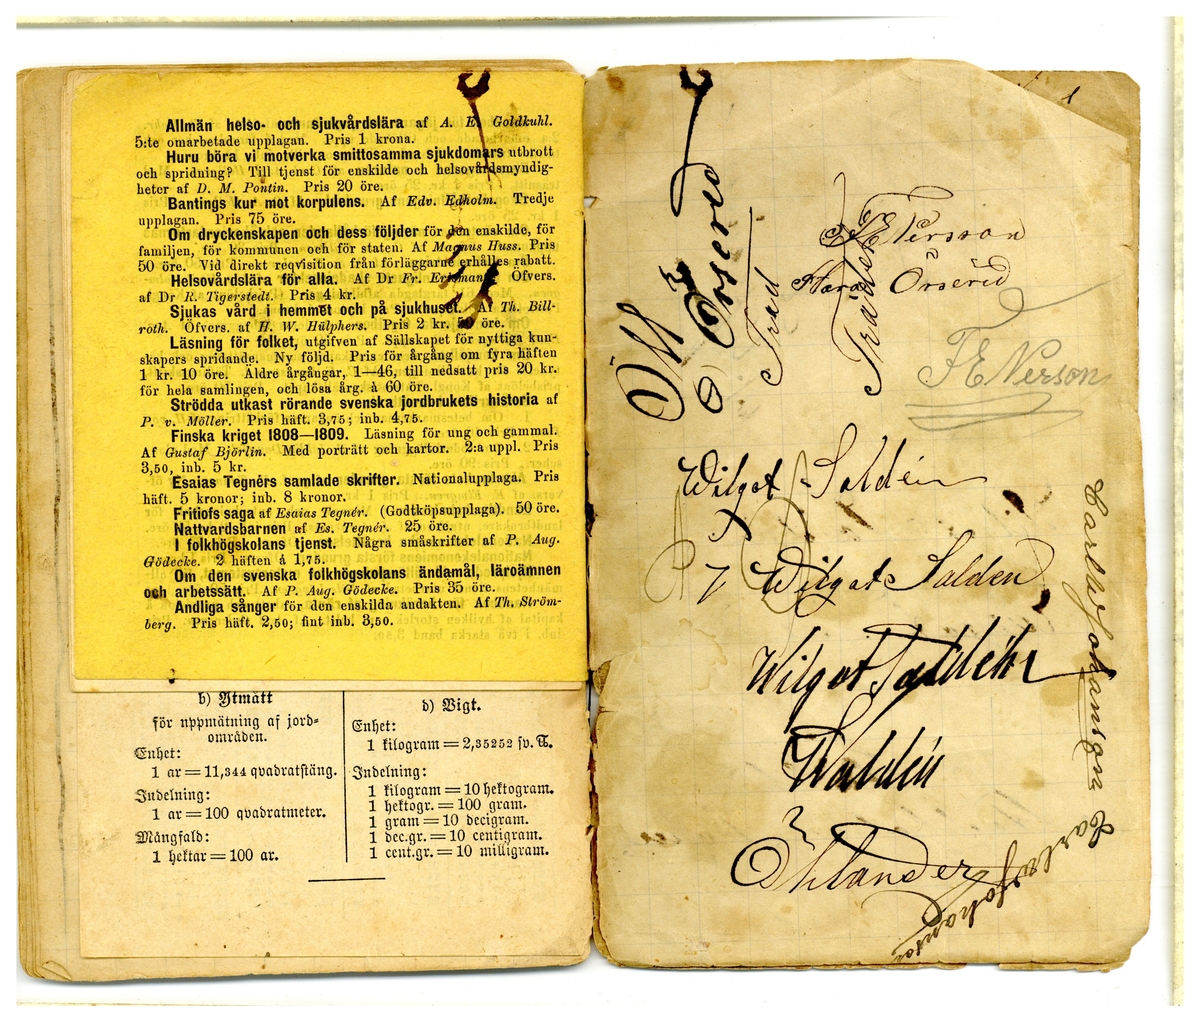 Allmän helso- och sjukvårdslära af A. E. Goldkuhl.
5:te omarbetade upplagan. Pris 1 krona.
Huru böra vi motverka smittosamma sjukdomars utbrott
och spridning? Till tjenst för enskilde och helsovårdsmyndig-
heter af D. M. Pontin. Pris 20 öre.
Bantings kur mot korpulens. Af Edv. Edholm. Tredje
upplagan. Pris 75 öre.
Om dryckenskapen och dess följder för den enskilde, för
familjen, för kommunen och för staten. Af Magnus Huss. Pris
50 öre. Vid direkt reqvisition från förläggarne erhålles rabatt.
Helsovårdslära för alla. Af Dr Fr. Erismann. Öfvers.
af Dr R. Tigerstedt. Pris 4 kr.
Sjukas vård i hemmet och på sjukhuset. Af Th. Bill-
roth. Öfvers. af H. W. Hülphers. Pris 2 kr. 50 öre.
Läsning för folket, utgifven af Sällskapet för nyttiga kun-
skapers spridande. Ny följd. Pris för årgång om fyra häften
1 kr. 10 öre. Äldre årgångar, 1—46, till nedsatt pris 20 kr.
för hela samlingen, och lösa årg. à 60 öre.
Strödda utkast rörande svenska jordbrukets historia af
P. v. Möller. Pris häft. 3,75; inb. 4,75.
Finska kriget 1808—1809. Läsning för ung och gammal.
Af Gustaf Björlin. Med porträtt och kartor. 2:a uppl. Pris
3,50, inb. 5 kr.
Esaias Tegnérs samlade skrifter. Nationalupplaga. Pris
häft. 5 kronor; inb. 8 kronor.
Fritiofs saga af Esaias Tegnér. (Godtköpsupplaga). 50 öre.
Nattvardsbarnen af Es. Tegnér. 25 öre.
I folkhögskolans tjenst. Några småskrifter af P. Aug.
Gödecke. 2 häften á 1,75.
Om den svenska folkhögskolans ändamål, läroämnen
och arbetssätt. Af P. Aug. Gödecke. Pris 35 öre.
Andliga sånger för den enskilda andakten. Af Th. Ström-
berg. Pris häft. 2,50; fint inb. 3,50.
b) Ytmått
för uppmätning af jord-
områden.
Enhet:
1 ar = 11,344 qvadratstäng.
Indelning:
1 ar = 100 qvadratmeter.
Mångfald:
1 hektar = 100 ar.
d) Vigt.
Enhet:
1 kilogram = 2,35252 sv. ℔.
Indelning:
1 kilogram = 10 hektogram.
1 hektogr. = 100 gram.
1 gram = 10 decigram.
1 dec.gr. = 10 centigram.
1 cent.gr. = 10 milligram.
Orserid
Träd
F E Persson
Orserid
Träden
F E Person
Wilgot Saldén
Wilgot Salden
Wilgot Saldén
Waldén
Öhlander
Carl W Johansson
Carl W Johanson